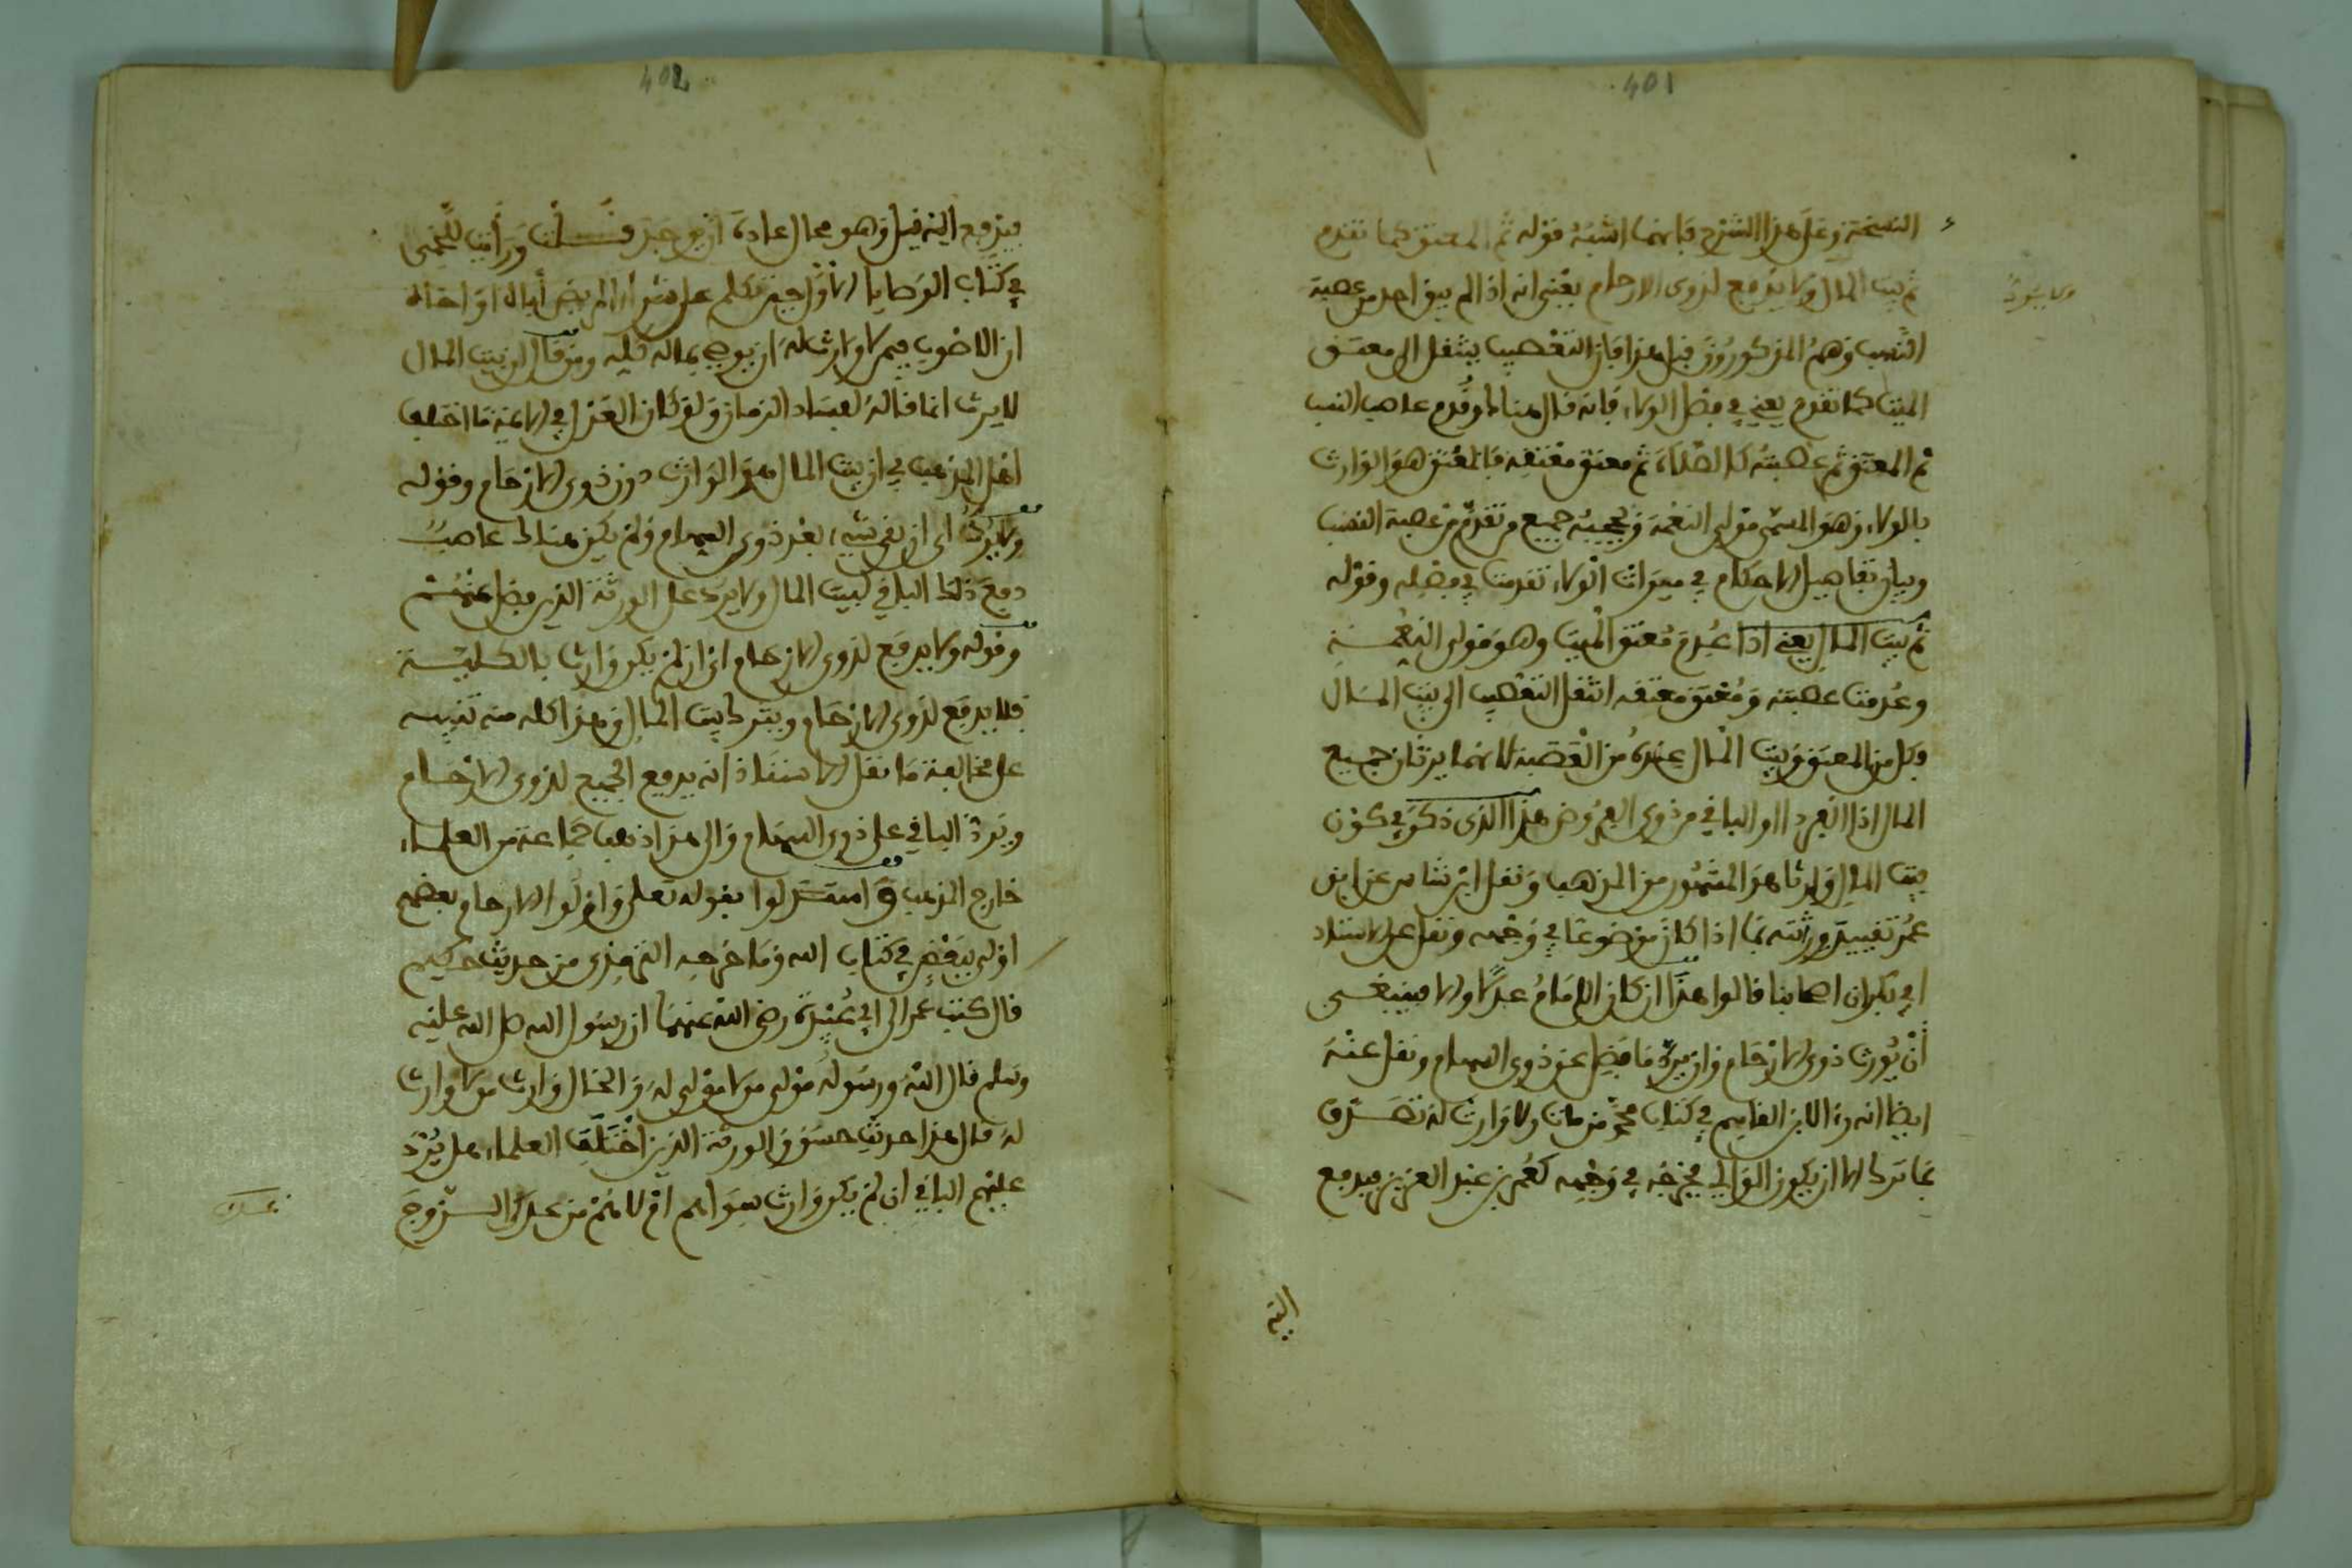 401
النسخة وعلى هذا الشرح فإنما أشبه قوله ثم المعتق كما تقدم
ثم بيت المال ولا يدفع لذوي الارحام يعني انه اذا لم يبق احد من عصبة
ولا يرد
النسب وهم المذكورون قبل هذا فإن التعصيب ينتقل الى معتق
الميت كما تقدم يعني في فصل الولاء فإنه قال هناك وقدم عاصب النسب
ثم المعتق ثم عصبته كالصلاة ثم معتق معتقه فالمعتق هو الوارث
بالولاء وهو المسمى مولى النعمة ويحجبه جميع من تقدم من عصبة النسب
وبيان تفاصيل الاحكام في ميراث الولاء تقدمت في فصله وقوله
ثم بيت المال يعني اذا عدم معتق الميت وهو مولى النعمة
وعدمت عصبته ومعتق معتقه انتقل التعصيب الى بيت المال
وكل من المعتق وبيت المال عنده من العصبة لانهما يرثان جميع
المال اذا انفردا او الباقي من ذوي الفروض هذا الذي ذكر في كون
بيت المال وارثا هو المشهور من المذهب ونقل ابن شاس عن ابي
عمر تقييد وراثته بما اذا كان موضوعا في وجهه ونقل عن الاستاذ
ابي بكر ان اصحابنا قالوا هذا ان كان الامام عدلا والا فينبغي
أن يورث ذوي الارحام وان يرد ما فضل عن ذوي السهام ونقل عنه
ايضا انه رءا لابن القاسم في كتاب محمد من مات ولا وارث له تصدق
بما ترك الا ان يكون الوالي يخرجه في وجهه كعمر بن عبد العزيز فيدفع
اليه
402
فيدفع اليه قيل وهو محال عادة ان يوجد قلت ورأيت للخمي
في كتاب الوصايا الاول حين تكلم على شراء المريض أباه او اخاه
ان الاصوب فيمن لا وارث له ان يوصي بماله كله ومن قال ان بيت المال
لا يرث انما قاله لفساد الزمان ولو كان العدل في الايمة ما اختلف
اهل المذهب في ان بيت المال هو الوارث دون ذوي الارحام وقوله
ولا يرد اي ان بقي شيء بعد ذوي السهام ولم يكن هناك عاصب
دفع ذلك الباقي لبيت المال ولا يرد على الورثة الذين فضل عنهم
وقوله ولا يدفع لذوي الارحام اي ان لم يكن وارث بالكلية
فلا يدفع لذوي الارحام ويترك لبيت المال وهذا كله منه تنبيه
على مخالفة ما نقل الاستاذ انه يدفع الجميع لذوي الارحام
ويرد الباقي على ذوي السهام والى هذا ذهب جماعة من العلماء
خارج المذهب واستدلوا بقوله تعلى واولوا الارحام بعضهم
اولى ببعض في كتاب الله وما خرجه الترمذي من حديث حكيم
قال كتب عمر الى ابي عبيدة رضي الله عنهما ان رسول الله صلى الله عليه
وسلم قال الله ورسوله مولى من لا مولى له والخال وارث من لا وارث
له قال هذا حديث حسن والورثة الذين اختلف العلماء هل يرد
عليهم الباقي ان لم يكن وارث سواهم ام لا هم من عدا الزوج
عدا